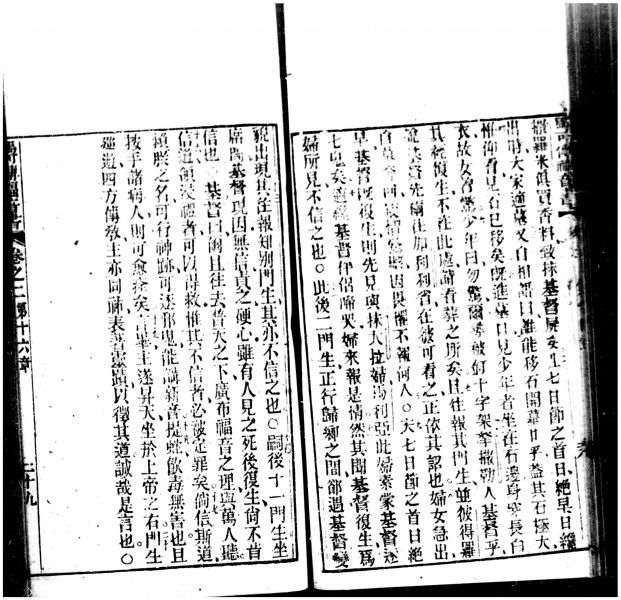 撒羅米俱買香料致抹基督屍矣七日節之首日絕早日纔
出時大家適墓又自相謂曰誰能移石開墓口乎蓋其石極大
惟仰看見石已移矣既進墓口見少年者坐在石邊身穿長白
衣故女皆驚少年曰勿驚爾尋被釘十字架拏撒勒人基督乎
其經復生不在此處請看葬之所矣且往報其門生並彼得羅
說基督先爾往加利利省在彼可看之正依其認也婦女急出
自墓奔因畏懼不報何人○夫七日節之首日絕
早基督既復生則先見與抹大拉婦馬利亞此婦素蒙基督逐
七鬼矣適基督伴侶啼哭婦來報是情然其聞基督復生爲
婦所見不信之也○此後二門生正行歸鄉之間卻遇基督變
貌出現其往報知別門生其亦不信之也○嗣後十一門生坐
席間基督現因無信責之硬心雖有人見之死後復生尚不肯
信也基督曰爾且往去普天之下廣布福音之理與萬人聽
信道領洗禮者可以得救惟其不信者必被定罪矣倘信斯道
賴朕之名可行神跡可逐邪鬼能講新音提蛇飲毒無害也且
按手諸病人則可愈痊矣言畢主遂昇天坐於上帝之右門生
遊四方傳教主亦同祐表著靈蹟以德其道誠哉是言也○
卷之二第十六章 二十九